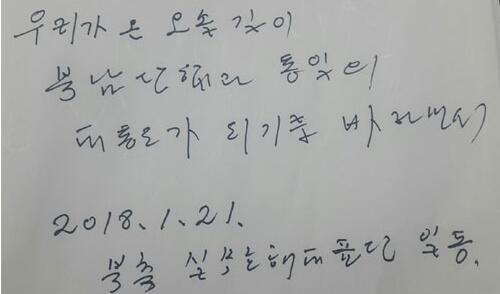 우리가 온 오솔길이
북남단합과 통일의
대통로가 되기를 바라면서
2018.1.21.
북측 대표단 일동.